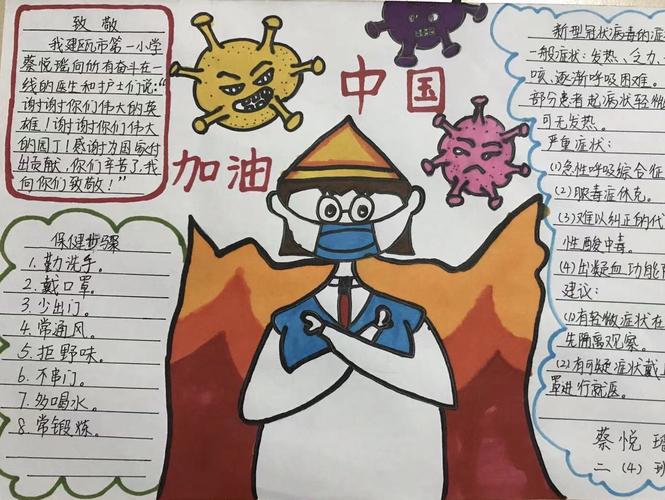 致敬
我建瓯市第一小学
蔡悦瑶向所有奋斗在一
线的医生和护士们说:“
谢谢你们伟大的英
雄!谢谢你们伟大
的园丁!感谢为国家付
出贡献,你们辛苦了,我
向你们致敬!”
中国
加油
保健步骤
1.勤洗手。
2.戴口罩。
3.少出门。
4.常通风。
5.拒野味。
6.不串门。
7.多喝水。
8.常锻炼。
新型冠状病毒的症
一般症状:发热、乏力、
咳、逐渐呼吸困难。
部分患者起病状轻微
可无发热。
严重症状:
(1)急性呼吸综合症
(2)脓毒症休克。
(3)难以纠正的代
性酸中毒。
(4)出凝血功能
建议:
(1)有轻微症状在
先隔离观察。
(2)有可疑症状戴
罩进行就医。
蔡悦瑶
二(4)班